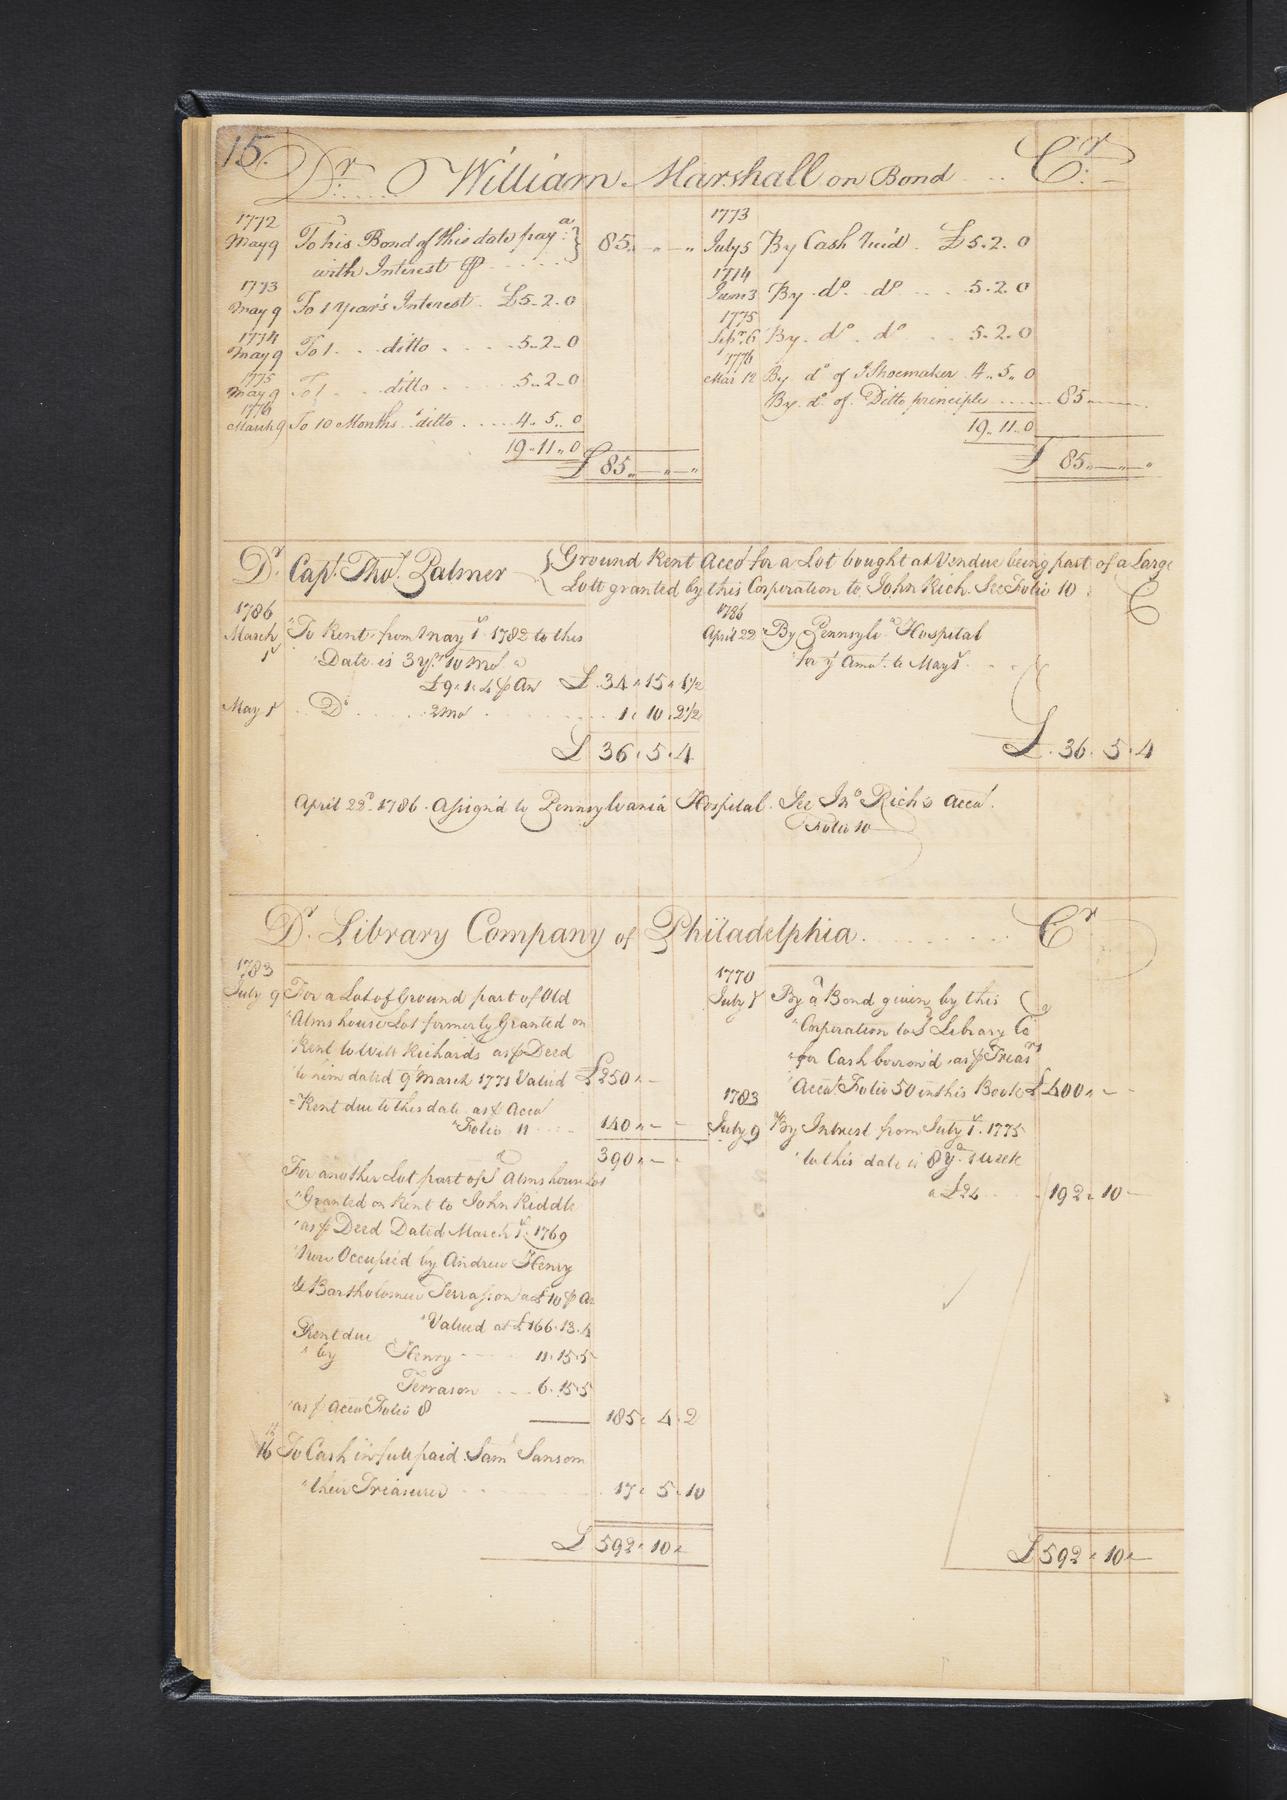 15.
Dr William Marshall on Bond Cr
1772
May 9 To his Bond of this date paya:
with Interest ⅌ 85 „ — „
1773
May 9 To 1 Year's Interest £5-2-0
1774
May 9 To 1 ditto 5-2-0
1775
May 9 To 1 ditto 5-2-0
1776
March 9 To 10 Months ditto 4..5..0
19..11..0
£ 85 „ — „ — „
1773
July 5 By Cash Rec'd £5-2-0
1774
June 3 By do do 5-2-0
1775
Septr 6 By do do 5-2-0
1776
Mar 12 By do of J Shoemaker 4..5..0
By do of Ditto principle 85 —
19..11..0
£ 85 „ — „ — „
Dr Capt. Thos. Palmer Ground Rent Accot for a Lot bought at Vendue being part of a Large
Lott granted by this Corporation to John Rich. See Folio 10 C
1786
March 1st To Rent from May 1st 1782 to this
Date is 3 yrs 10 Mos a
£9.1.4 ⅌ An £ 34 „ 15 „ 1½
May 1st Do 2 Mo 1 „ 10 „ 2½
£ 36 „ 5 „ 4
1786
April 22 By Pennsylva Hospital
for ye Amot. to May 1st
£ 36 „ 5 „ 4
April 22d. 1786. Assign'd to Pennsylvania Hospital. See Jno Rich's Accot.
Folio 10
Dr. Library Company of Philadelphia. Cr
1783
July 9 For a Lot of Ground part of Old
Alms house Lot formerly Granted on
Rent to Will Richards as ⅌ Deed
to him dated 9 March 1771 Valued £250 „ —
Rent due to this date as ⅌ Accot
Folio 11 140 „ — -
390 „ — -
For another Lot part of ye Almshouse Lot
Granted on Rent to John Riddle
as ⅌ Deed Dated March 1st. 1769
Now Occupied by Andrew Henry
& Bartholomew Terrasson at £10 ⅌ An
Valued at £166.13.4
Rent due
by Henry 11.15.5
Terrason 6.15.5
as ⅌ Accot Folio 8
185 „ 4 „ 2
16 To Cash in full paid Saml Sansom
their Treasurer 17 „ 5 „ 10
£ 592 „ 10 „
1770
July 1st By a Bond given by this
Corporation to ye Library Co
for Cash borrow'd as ⅌ Treasrs
Accot. Folio 50 in this Book £400 „ — -
1783
July 9 By Intrest from July 1st. 1775
to this date is 8 yrs. 1 week
a £24 192 „ 10 —
£ 592 „ 10 „ —